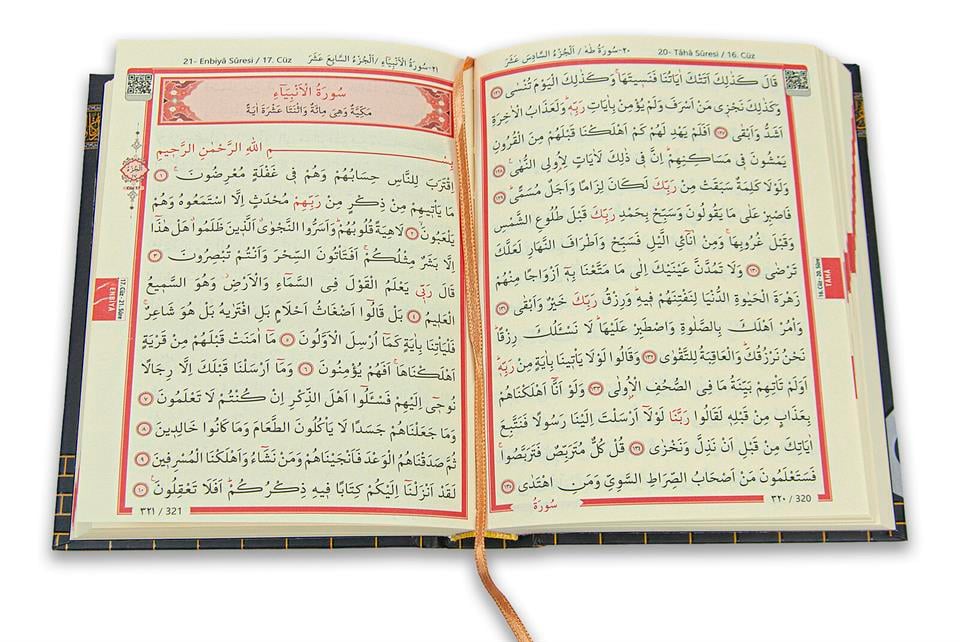 ٢٠-سُورَةُ طٰهٰ / اَلْجُزْءُ السَّادِسَ عَشَرَ 20- Tâhâ Sûresi / 16. Cüz
قَالَ كَذٰلِكَ اَتَتْكَ اٰيَاتُنَا فَنَس۪يتَهَاۚ وَكَذٰلِكَ الْيَوْمَ تُنْسٰى ﴿١٢٦﴾
وَكَذٰلِكَ نَجْز۪ي مَنْ اَسْرَفَ وَلَمْ يُؤْمِنْ بِاٰيَاتِ رَبِّه۪ۜ وَلَعَذَابُ الْاٰخِرَةِ
اَشَدُّ وَاَبْقٰى ﴿١٢٧﴾ اَفَلَمْ يَهْدِ لَهُمْ كَمْ اَهْلَكْنَا قَبْلَهُمْ مِنَ الْقُرُونِ
يَمْشُونَ ف۪ي مَسَاكِنِهِمْۜ اِنَّ ف۪ي ذٰلِكَ لَاٰيَاتٍ لِاُو۬لِي النُّهٰى۟ ﴿١٢٨﴾
وَلَوْلَا كَلِمَةٌ سَبَقَتْ مِنْ رَبِّكَ لَكَانَ لِزَامًا وَاَجَلٌ مُسَمًّىۜ ﴿١٢٩﴾
فَاصْبِرْ عَلٰى مَا يَقُولُونَ وَسَبِّحْ بِحَمْدِ رَبِّكَ قَبْلَ طُلُوعِ الشَّمْسِ
وَقَبْلَ غُرُوبِهَاۚ وَمِنْ اٰنَٓائِ الَّيْلِ فَسَبِّحْ وَاَطْرَافَ النَّهَارِ لَعَلَّكَ
تَرْضٰى ﴿١٣٠﴾ وَلَا تَمُدَّنَّ عَيْنَيْكَ اِلٰى مَا مَتَّعْنَا بِه۪ٓ اَزْوَاجًا مِنْهُمْ
زَهْرَةَ الْحَيٰوةِ الدُّنْيَا لِنَفْتِنَهُمْ ف۪يهِۜ وَرِزْقُ رَبِّكَ خَيْرٌ وَاَبْقٰى ﴿١٣١﴾
وَأْمُرْ اَهْلَكَ بِالصَّلٰوةِ وَاصْطَبِرْ عَلَيْهَاۜ لَا نَسْـَٔلُكَ رِزْقًاۜ
نَحْنُ نَرْزُقُكَۜ وَالْعَاقِبَةُ لِلتَّقْوٰى ﴿١٣٢﴾ وَقَالُوا لَوْلَا يَأْت۪ينَا بِاٰيَةٍ مِنْ رَبِّه۪ۜ
اَوَلَمْ تَأْتِهِمْ بَيِّنَةُ مَا فِي الصُّحُفِ الْاُو۫لٰى ﴿١٣٣﴾ وَلَوْ اَنَّٓا اَهْلَكْنَاهُمْ
بِعَذَابٍ مِنْ قَبْلِه۪ لَقَالُوا رَبَّنَا لَوْلَٓا اَرْسَلْتَ اِلَيْنَا رَسُولًا فَنَتَّبِعَ
اٰيَاتِكَ مِنْ قَبْلِ اَنْ نَذِلَّ وَنَخْزٰى ﴿١٣٤﴾ قُلْ كُلٌّ مُتَرَبِّصٌ فَتَرَبَّصُواۚ
فَسَتَعْلَمُونَ مَنْ اَصْحَابُ الصِّرَاطِ السَّوِيِّ وَمَنِ اهْتَدٰى ﴿١٣٥﴾
سُورَةُ
٣٢٠ / 320
16. Cüz - 20. Sûre
TÂHÂ
21- Enbiyâ Sûresi / 17. Cüz ٢١-سُورَةُ الْاَنْبِيَٓاءِ /اَلْجُزْءُ السَّابِعَ عَشَرَ
سُورَةُ الْاَنْبِيَٓاءِ
مَكِّيَّةٌ وَهِيَ مِائَةٌ وَاثْنَتَا عَشْرَةَ اٰيَةً
بِسْمِ اللّٰهِ الرَّحْمٰنِ الرَّح۪يمِ
اِقْتَرَبَ لِلنَّاسِ حِسَابُهُمْ وَهُمْ ف۪ي غَفْلَةٍ مُعْرِضُونَۚ ﴿١﴾
مَا يَأْت۪يهِمْ مِنْ ذِكْرٍ مِنْ رَبِّهِمْ مُحْدَثٍ اِلَّا اسْتَمَعُوهُ وَهُمْ
يَلْعَبُونَۙ ﴿٢﴾ لَاهِيَةً قُلُوبُهُمْۜ وَاَسَرُّوا النَّجْوٰىۗ اَلَّذ۪ينَ ظَلَمُواۗ هَلْ هٰذَٓا
اِلَّا بَشَرٌ مِثْلُكُمْۚ اَفَتَأْتُونَ السِّحْرَ وَاَنْتُمْ تُبْصِرُونَ ﴿٣﴾
قَالَ رَبّ۪ي يَعْلَمُ الْقَوْلَ فِي السَّمَٓاءِ وَالْاَرْضِۘ وَهُوَ السَّم۪يعُ
الْعَل۪يمُ ﴿٤﴾ بَلْ قَالُٓوا اَضْغَاثُ اَحْلَامٍ بَلِ افْتَرٰيهُ بَلْ هُوَ شَاعِرٌۚ
فَلْيَأْتِنَا بِاٰيَةٍ كَمَٓا اُرْسِلَ الْاَوَّلُونَ ﴿٥﴾ مَٓا اٰمَنَتْ قَبْلَهُمْ مِنْ قَرْيَةٍ
اَهْلَكْنَاهَاۚ اَفَهُمْ يُؤْمِنُونَ ﴿٦﴾ وَمَٓا اَرْسَلْنَا قَبْلَكَ اِلَّا رِجَالًا
نُوح۪ٓي اِلَيْهِمْ فَسْـَٔلُٓوا اَهْلَ الذِّكْرِ اِنْ كُنْتُمْ لَا تَعْلَمُونَ ﴿٧﴾
وَمَا جَعَلْنَاهُمْ جَسَدًا لَا يَأْكُلُونَ الطَّعَامَ وَمَا كَانُوا خَالِد۪ينَ ﴿٨﴾
ثُمَّ صَدَقْنَاهُمُ الْوَعْدَ فَاَنْجَيْنَاهُمْ وَمَنْ نَشَٓاءُ وَاَهْلَكْنَا الْمُسْرِف۪ينَ ﴿٩﴾
لَقَدْ اَنْزَلْنَٓا اِلَيْكُمْ كِتَابًا ف۪يهِ ذِكْرُكُمْۜ اَفَلَا تَعْقِلُونَ۟ ﴿١٠﴾
٣٢١ / 321
17. Cüz - 21. Sûre
ENBİYÂ